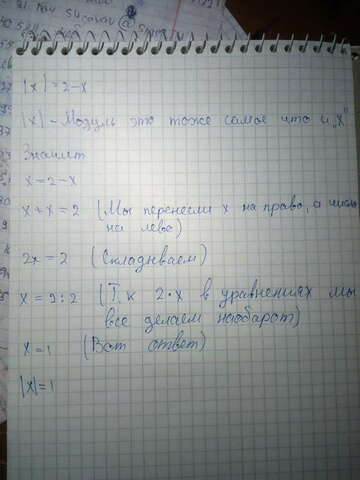 |x| = 2-x
|x| - Модуль это тоже самое что и „x"
Значит
x = 2-x
x+x = 2 (Мы перенесли x на право, а числа
на лево)
2x = 2 (Складываем)
x = 2:2 (Т.к 2·x в уравнениях мы
все делаем наоборот)
x = 1 (Вот ответ)
|x|=1